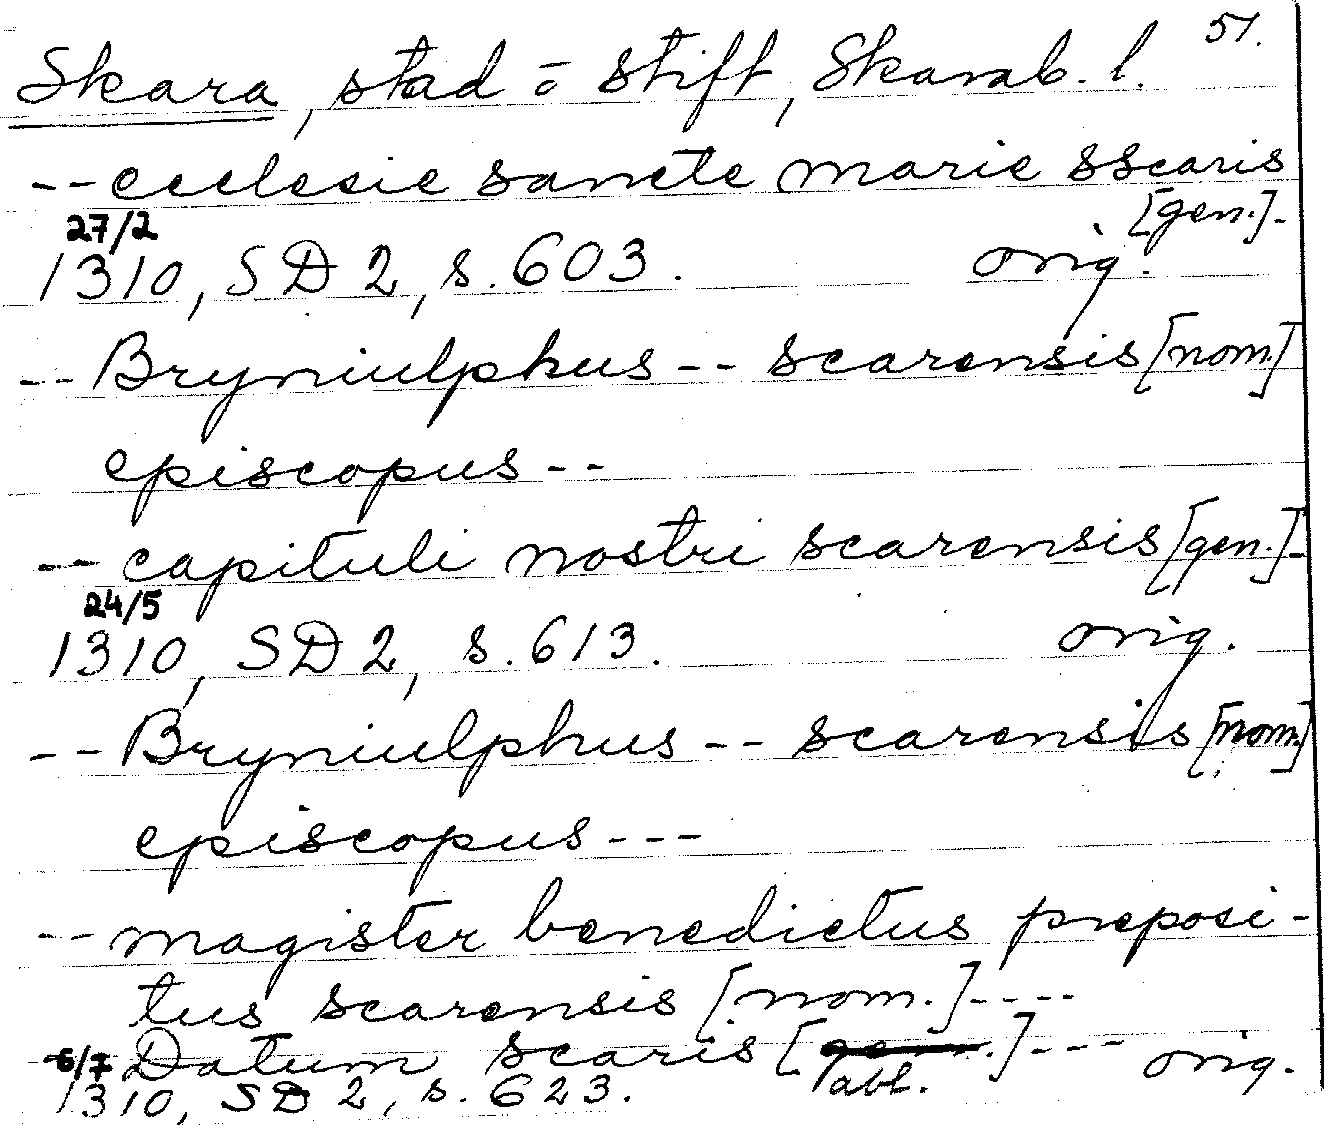 51.
Skara, stad o stift, Skarab. l.
--ecclesie sancte marie sscaris
[gen.]-
27/2
1310, SD 2, s. 603. orig.
--Bryniulphus -- scarensis [nom.]
episcopus --
--capituli nostri scarensis [gen.]-
24/5
1310, SD 2, s. 613. orig.
--Bryniulphus -- scarensis [nom.]
episcopus ---
--magister benedictus preposi-
tus scarensis [nom.]----
--Datum scaris [gen.]--- orig.
abl.
6/7
1310, SD 2, s. 623.